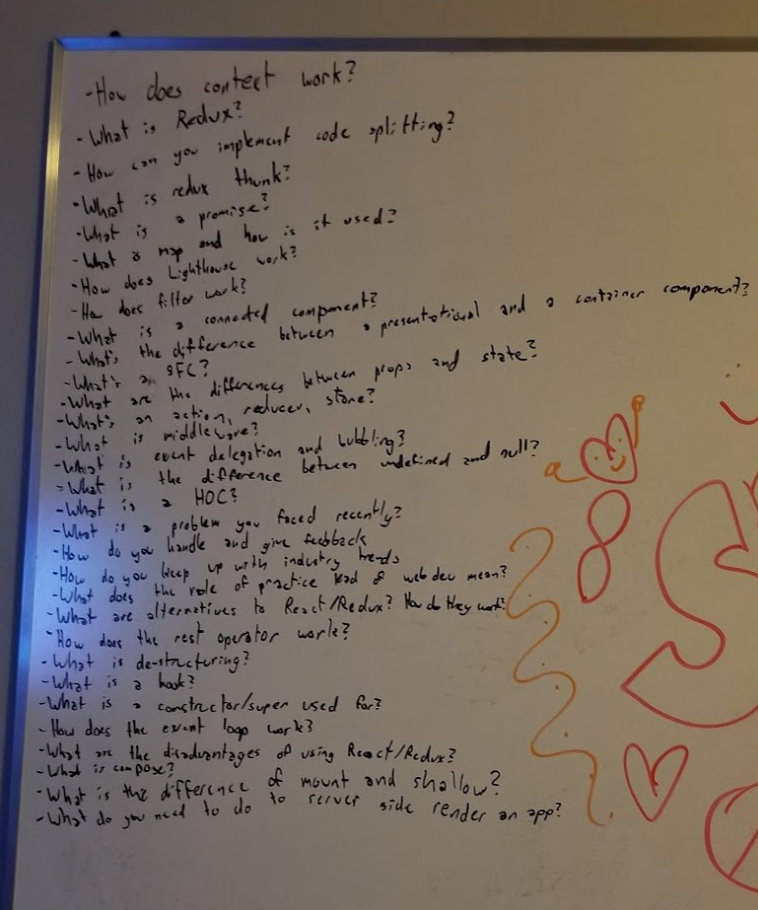 -How does context work?
-What is Redux?
-How can you implement code splitting?
-What is redux thunk?
-What is a promise?
-What is map and how is it used?
-How does Lighthouse work?
-How does filter work?
-What is a connected component?
-What's the difference between a presentational and a container component?
-What's a SFC?
-What are the differences between props and state?
-What's an action, reducer, store?
-What is middleware?
-What is event delegation and bubbling?
-What is the difference between undefined and null?
-What is a HOC?
-What is a problem you faced recently?
-How do you handle and give feedback
-How do you keep up with industry trends
-What does the role of practice lead of webdev mean?
-What are alternatives to React/Redux? How do they work?
-How does the rest operator work?
-What is de-structuring?
-What is a hook?
-What is a constructor/super used for?
-How does the event loop work?
-What are the disadvantages of using React/Redux?
-What is compose?
-What is the difference of mount and shallow?
-What do you need to do to server side render an app?